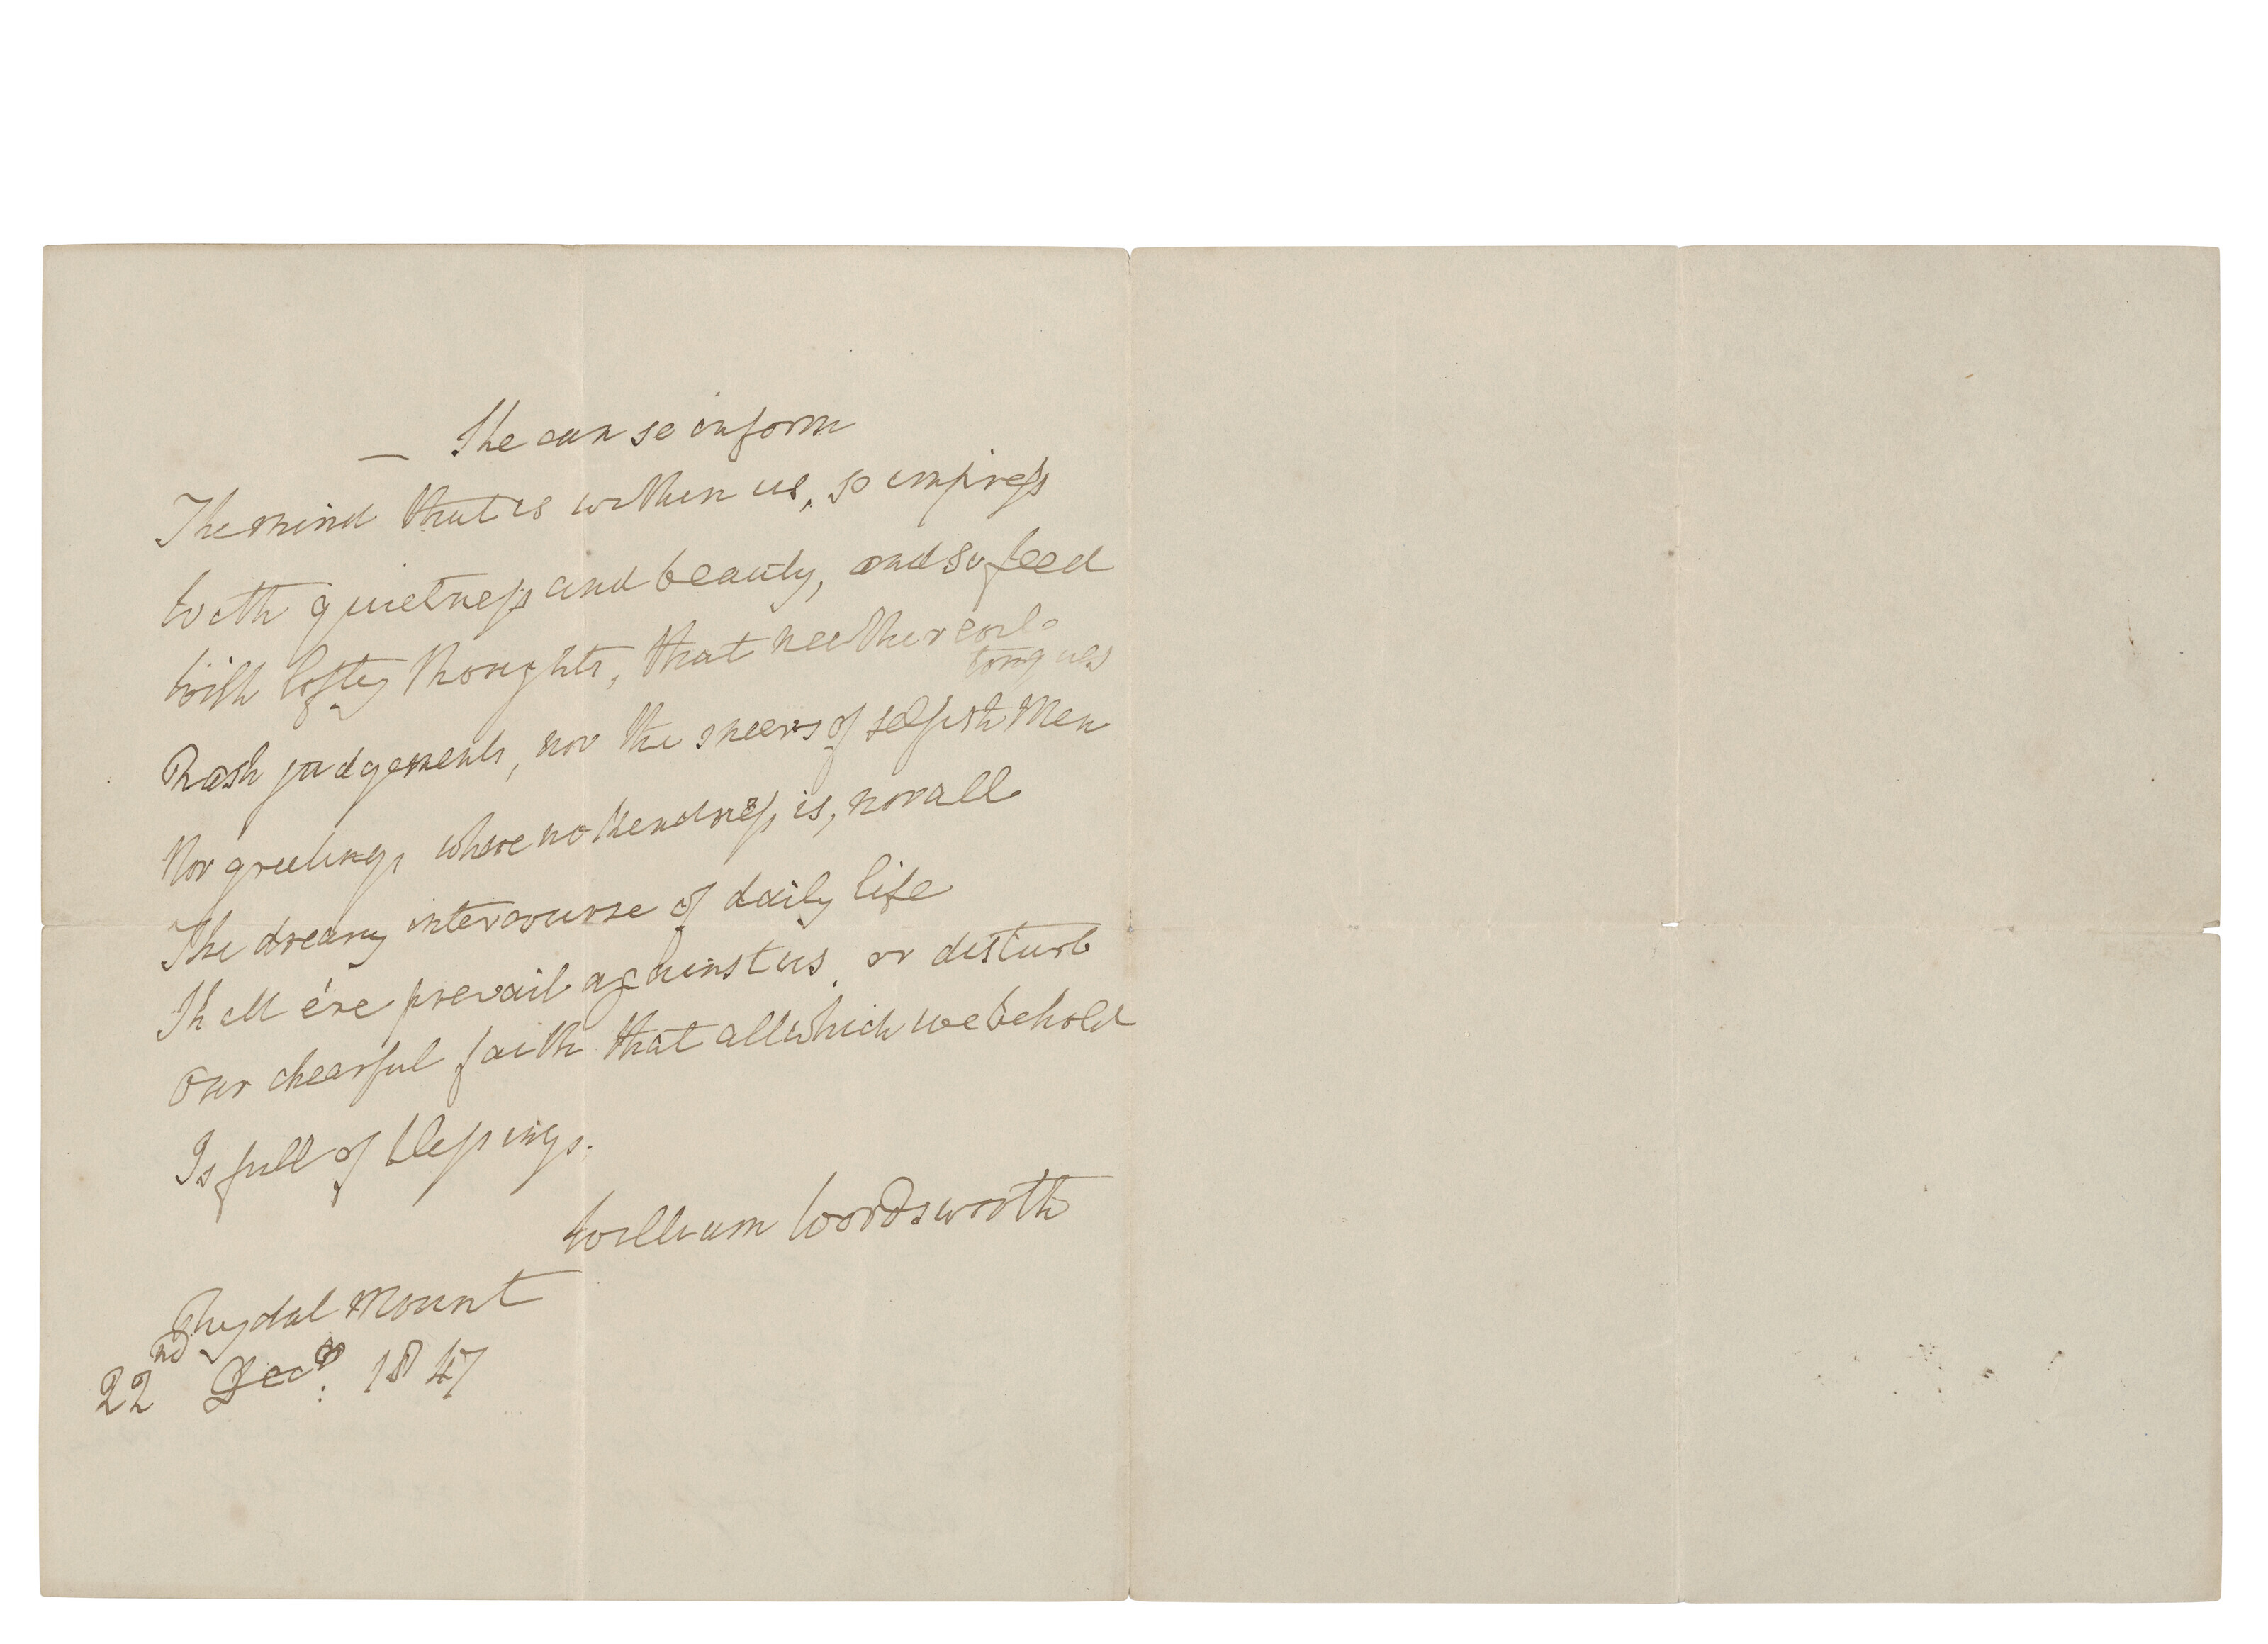 — She can so inform
The mind that is within us, so impress
With quietness and beauty, and so feed
With lofty thoughts, that neither evil
tongues
Rash judgements, nor the sneers of selfish Men
Nor greetings where no kindness is, nor all
The dreary intercourse of daily life
Shall e're prevail against us, or disturb
Our chearful faith that all which we behold
Is full of blessings.
William Wordsworth
Rydal Mount
22nd Decr: 1847